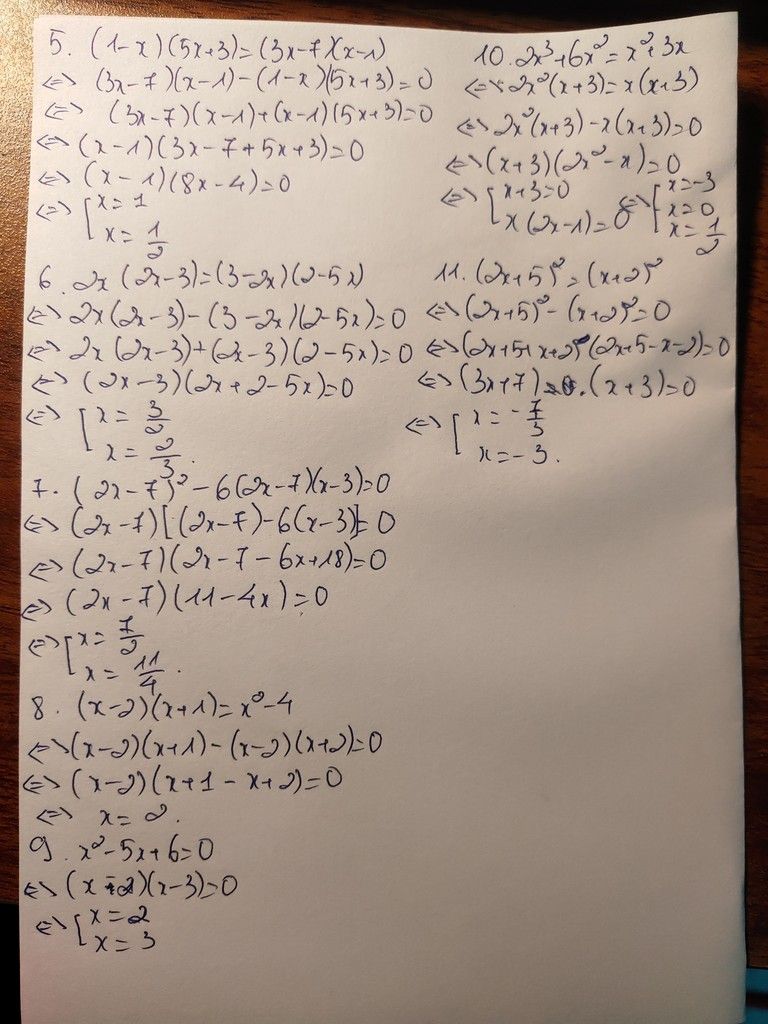 5. (1-x)(5x+3)=(3x-7)(x-1)
<=> (3x-7)(x-1)-(1-x)(5x+3)=0
<=> (3x-7)(x-1)+(x-1)(5x+3)=0
<=> (x-1)(3x-7+5x+3)=0
<=> (x-1)(8x-4)=0
<=> [x=1
x=1/2
6. 2x(2x-3)=(3-2x)(2-5x)
<=> 2x(2x-3)-(3-2x)(2-5x)=0
<=> 2x(2x-3)+(2x-3)(2-5x)=0
<=> (2x-3)(2x+2-5x)=0
<=> [x=3/2
x=2/3.
7. (2x-7)²-6(2x-7)(x-3)=0
<=> (2x-7)[(2x-7)-6(x-3)]=0
<=> (2x-7)(2x-7-6x+18)=0
<=> (2x-7)(11-4x)=0
<=> [x=7/2
x=11/4.
8. (x-2)(x+1)=x²-4
<=> (x-2)(x+1)-(x-2)(x+2)=0
<=> (x-2)(x+1-x+2)=0
<=> x=2.
9. x²-5x+6=0
<=> (x-2)(x-3)=0
<=> [x=2
x=3
10. 2x³+6x²=x²+3x
<=> 2x²(x+3)=x(x+3)
<=> 2x²(x+3)-x(x+3)=0
<=> (x+3)(2x²-x)=0
<=> [x+3=0 <=> [x=-3
x(2x-1)=0 x=0
x=1/2
11. (2x+5)²=(x+2)²
<=> (2x+5)²-(x+2)²=0
<=> (2x+5+x+2)(2x+5-x-2)=0
<=> (3x+7).(x+3)=0
<=> [x=-7/3
x=-3.